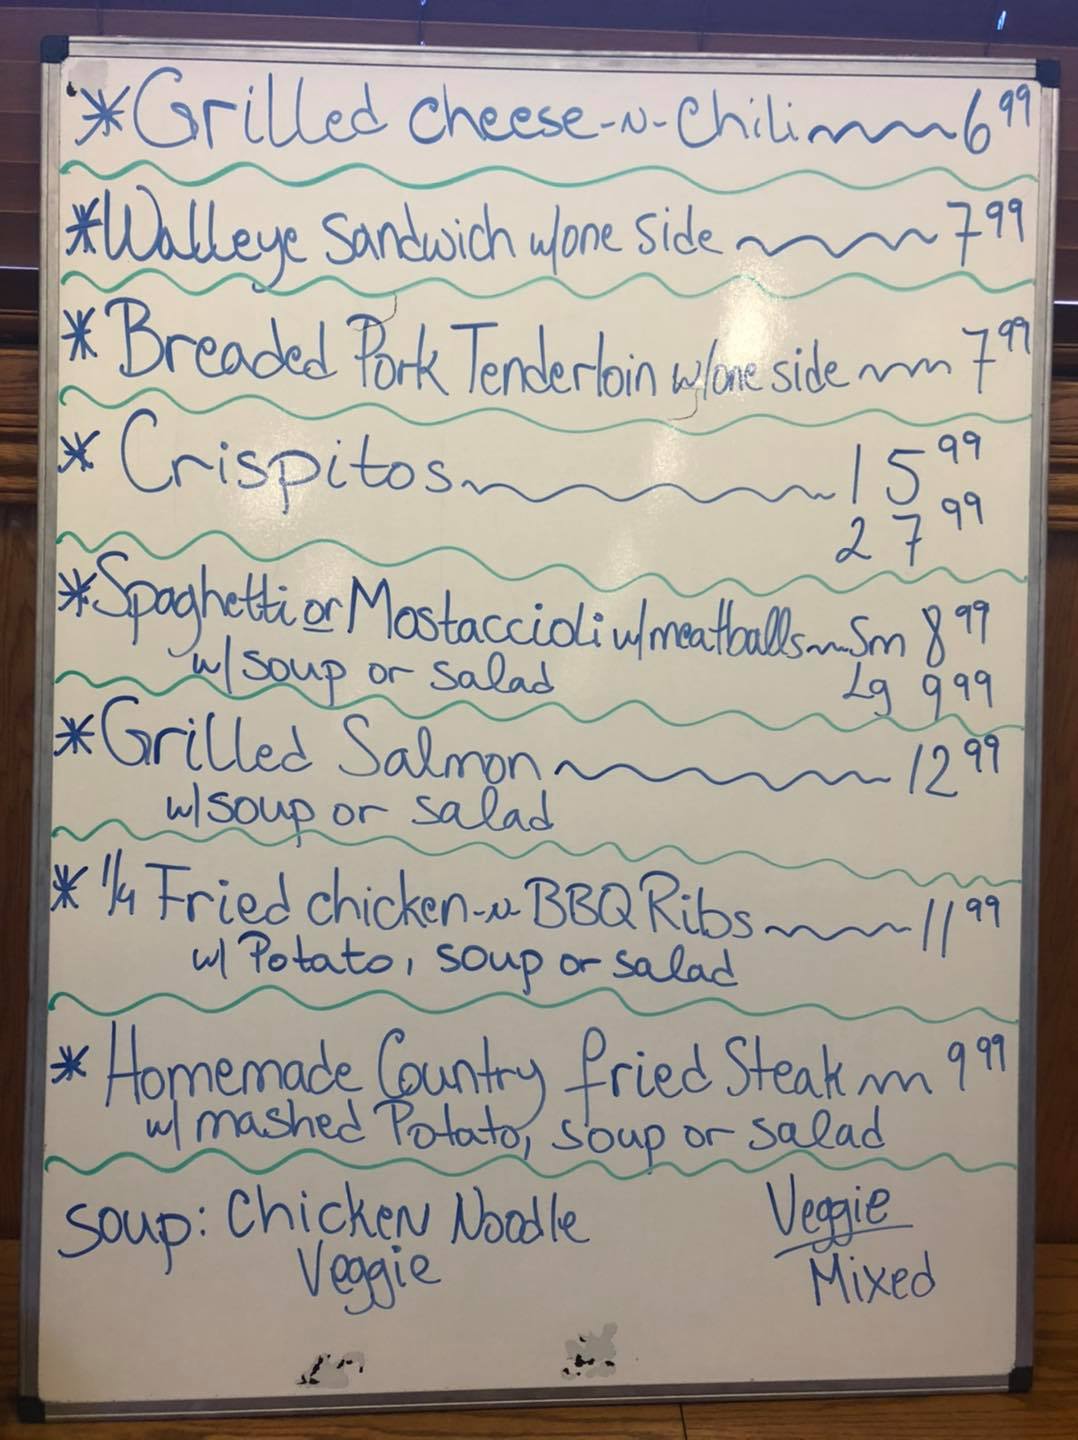 *Grilled cheese-N-Chili 6.99
*Walleye Sandwich w/one side 7.99
*Breaded Pork Tenderloin w/one side 7.99
*Crispitos 1 5.99
2 7.99
*Spaghetti or Mostaccioli w/meatballs Sm 8.99
w/soup or salad Lg 9.99
*Grilled Salmon 12.99
w/soup or salad
*1/4 Fried chicken-n-BBQ Ribs 11.99
w/ Potato, soup or salad
*Homemade Country fried Steak 9.99
w/ mashed Potato, soup or salad
Soup: Chicken Noodle
Veggie
Veggie
Mixed